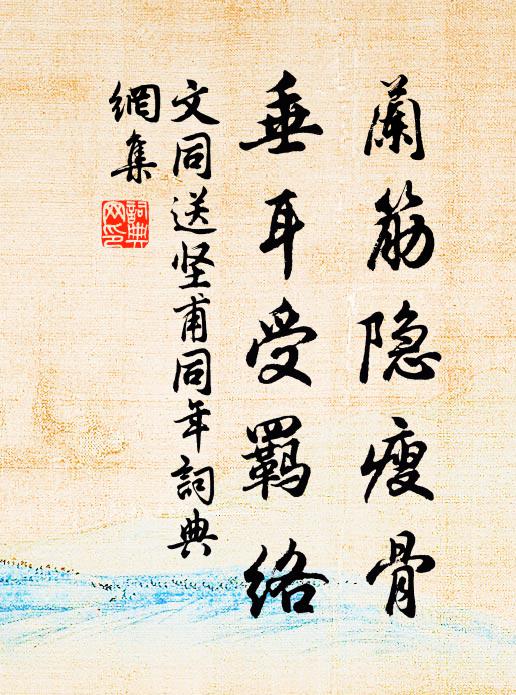 蘭筋隐瘦骨
垂耳受羁络
文同送坚甫同年詞典
網集
詞典
网印